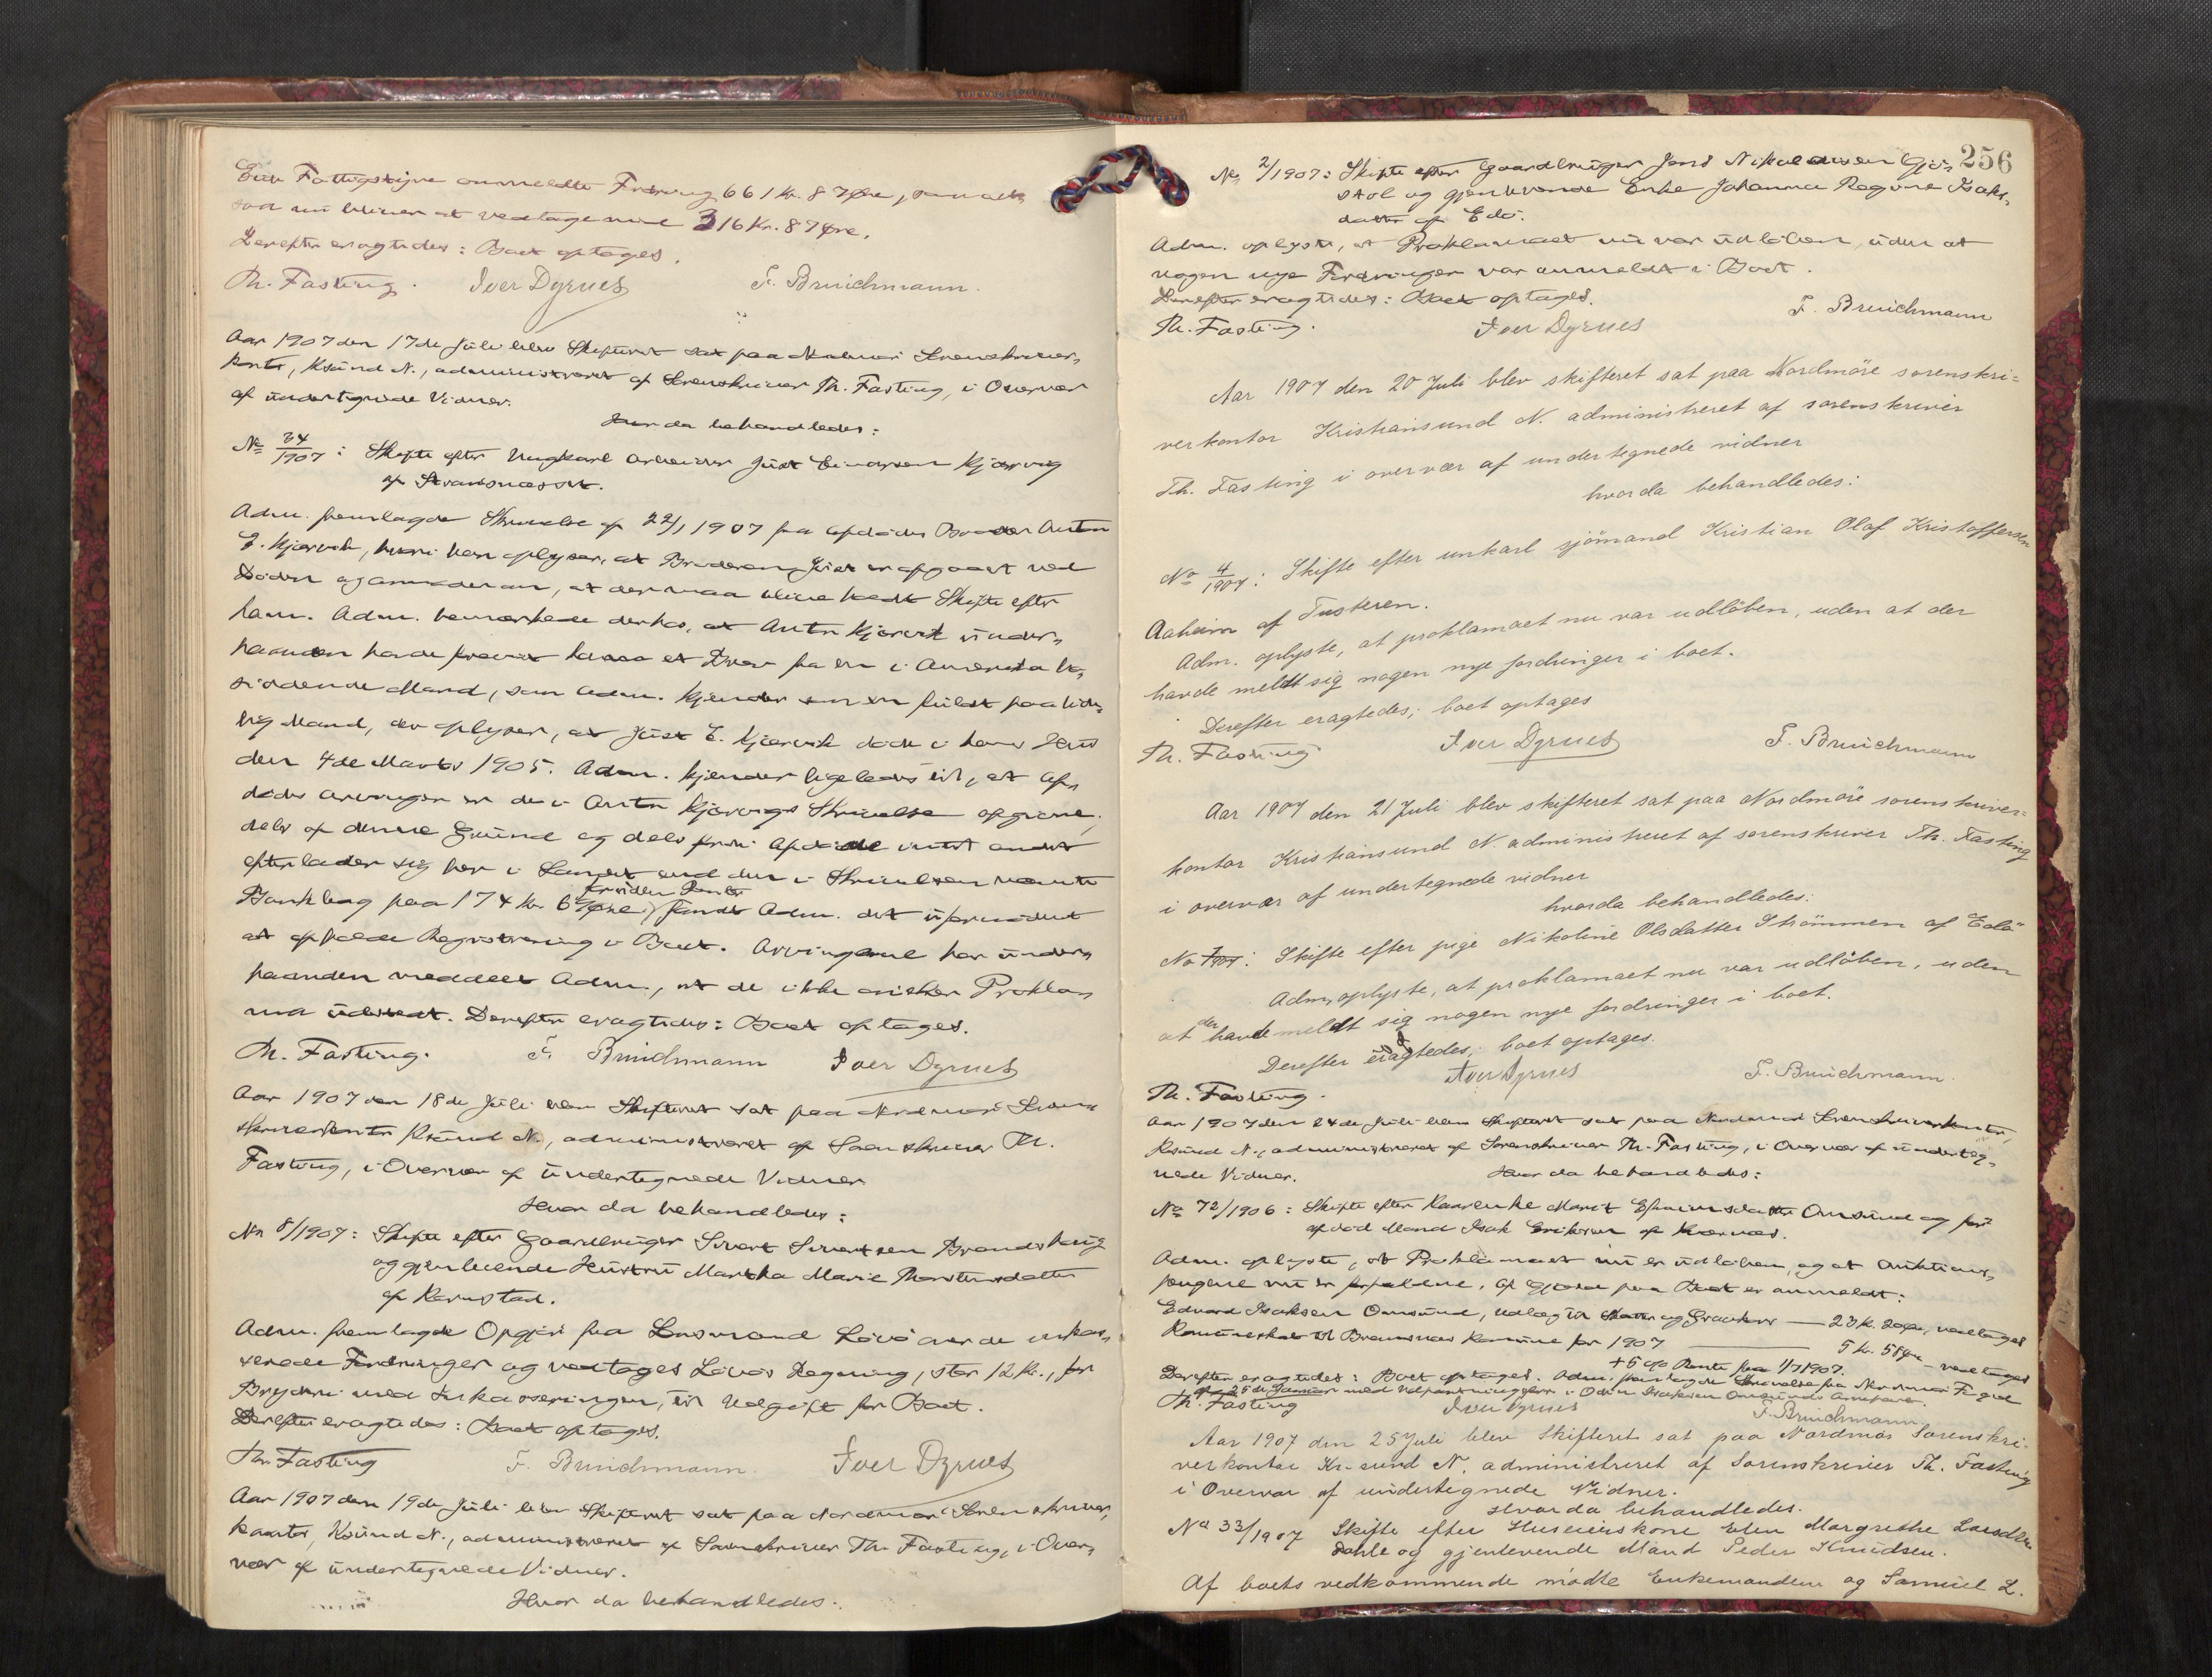 Edø Fattigstyre anmeldte Fordring 661 Kr. 87 Øre, som alt,
saa nu bliver at vedtage med 316 Kr. 87 Øre.
Derefter eragtedes: Boet optages.
Th. Fasting. Iver Dyrnes F. Bruichmann.
Aar 1907 den 17de Juli blev Skifteret sat paa Nordmøre Sorenskriver,
kontor, Ksund N., administreret af Sorenskriver Th. Fasting, i Overvær
af undertegnede Vidner.
Hvor da behandledes:
No 34/1907: Skifte efter Ungkarl Arbeider Just Einarsen Kjørvig
af
Adm. fremlagde Skrivelse af 22/1 1907 fra afdødes Broder Anton
E. Kjørvik, hvori han oplyser, at Broderen Just er afgaaet ved
Døden og anmoder om, at der maa blive holdt Skifte efter
ham. Adm. bemærkede derhos, at Anton Kjørvik under,
haanden havde et Brev fra en i Amerika bo,
siddende Mand, som Adm. kjender som en fuldt paalide,
lig Mand, der oplyser, at Just E. Kjørvik døde i hans Hus
den 4de Marts 1905. Adm. kjender ligeledes til, at Af,
dødes Arvinger er de i Anton Kjørvigs Skrivelse opgivne,
dels af denne Grund og dels fordi Afdøde intet andet
efterlader sig her i Landet end den i Skrivelsen nævnte
Bankbog paa 174 Kr. 6 Øre, foruden Renter fandt Adm. det ufornødent
at afholde Registrering i Boet. Arvingerne har under,
haanden meddelt Adm., at de ikke ønsker Prokla,
ma udstedt. Derefter eragtedes: Boet optages.
Th. Fasting. F. Bruichmann Iver Dyrnes
Aar 1907 den 18de Juli blev Skifteret sat paa Nordmøre Soren,
skriverkontor Ksund N., administreret af Sorenskriver Th.
Fasting, i Overvær af undertegnede Vidner
Hvor da behandledes:
No 8/1907: Skifte efter Gaardbruger Sivert Sivertsen Brandshaug
og gjenlevende Hustru Martha Marie Thorstensdatter
af Karnstad.
Adm. fremlagde Opgjør fra Lensmand Løvø over de inkas,
serede Fordringer og vedtages Løvøs Regning, stor 12 Kr., for
Bryderi med Inkasseringen, til Udgift for Boet.
Derefter eragtedes: Boet optages.
Th. Fasting F. Bruichmann. Iver Dyrnes
Aar 1907 den 19de Juli blev Skifteret sat paa Nordmøre Sorenskriver,
kontor, Ksund N., administreret af Sorenskriver Th. Fasting, i Over,
vær af undertegnede Vidner.
Hvor da behandledes:
256
No 2/1907: Skifte efter Gaardbruger Jens Nikolaisen Gjø,
støl og gjenlevende Enke Johanna Regine Isaks,
datter af Edø.
Adm. oplyste, at Proklamaet nu var udløben, uden at
nogen nye Fordringer var anmeldt i Boet.
Derefter eragtedes: Boet optages.
Th. Fasting. Iver Dyrnes F. Bruichmann
Aar 1907 den 20 Juli blev skifteret sat paa Nordmöre sorenskri=
verkontor Kristiansund N. administreret af sorenskriver
Th. Fasting i overvær af undertegnede vidner
hvorda behandledes:
No 4/1907: Skifte efter unkarl sjömand Kristian Olaf Kristoffersen
Aaheim af Tusteren.
Adm. oplyste, at proklamaet nu var udlöben, uden at der
havde meldt sig nogen nye fordringer i boet.
Derefter eragtedes; boet optages
Th. Fasting Iver Dyrnes F. Bruichmann
Aar 1907 den 21 Juli blev skifteret sat paa Nordmöre sorenskriver=
kontor Kristiansund N. administreret af sorenskriver Th. Fasting
i overvær af undertegnede vidner
hvorda behandledes:
No 7/1907: Skifte efter pige Nikoline Olsdatter Strömmen af Edö
Adm, oplyste, at proklamaet nu var udlöben, uden
at der havde meldt sig nogen nye fordringer i boet.
Derefter eragtedes; boet optages.
Th. Fasting. Iver Dyrnes F. Bruichmann.
Aar 1907 den 24de Juli blev Skifteret sat paa Nordmøre Sorenskriverkontor,
Ksund N., administreret af Sorenskriver Th. Fasting, i Overvær af underteg,
nede Vidner. Hvor da behandledes:
No 72/1906: Skifte efter Kaarenke Marit Efraimsdatter Omsund og før
afdød Mand Isak Eriksen af Kvernes.
Adm. oplyste, at Proklamaet nu er udløben, og at Auktions,
pengene nu er forfaldne. Af Gjæld paa Boet er anmeldt:
Edvard Isaksen Omsund, Udlæg til Skatter og Gravkors — 23 K. 20 Øre, vedtages
Kommuneskat til Bremsnes Kommune for 1907 — 5 Kr. 58 Øre — vedtages
+ 5 % Rente fra 1/7 1907.
Derefter eragtedes: Boet optages. Adm. fremlagde Skrivelse fra Nordmøre Fogderi
af 25de Januar med Udpantningsforr. i Odin Isaksen Omsunds Arvepart.
Th. Fasting Iver Dyrnes F. Bruichmann.
Aar 1907 den 25 Juli blev Skifteret sat paa Nordmøs Sorenskri-
verkontor Kr-sund N. administreret af Sorenskriver Th. Fasting
i Overvær af undertegnede Vidner.
Hvorda behandledes.
No 33/1907 Skifte efter Husmerskone Elen Margrethe Larsdtr.
Dahle og gjenlevende Mand Peder Knudsen.
Af boets vedkommende mødte Enkemanden og Samuel L.